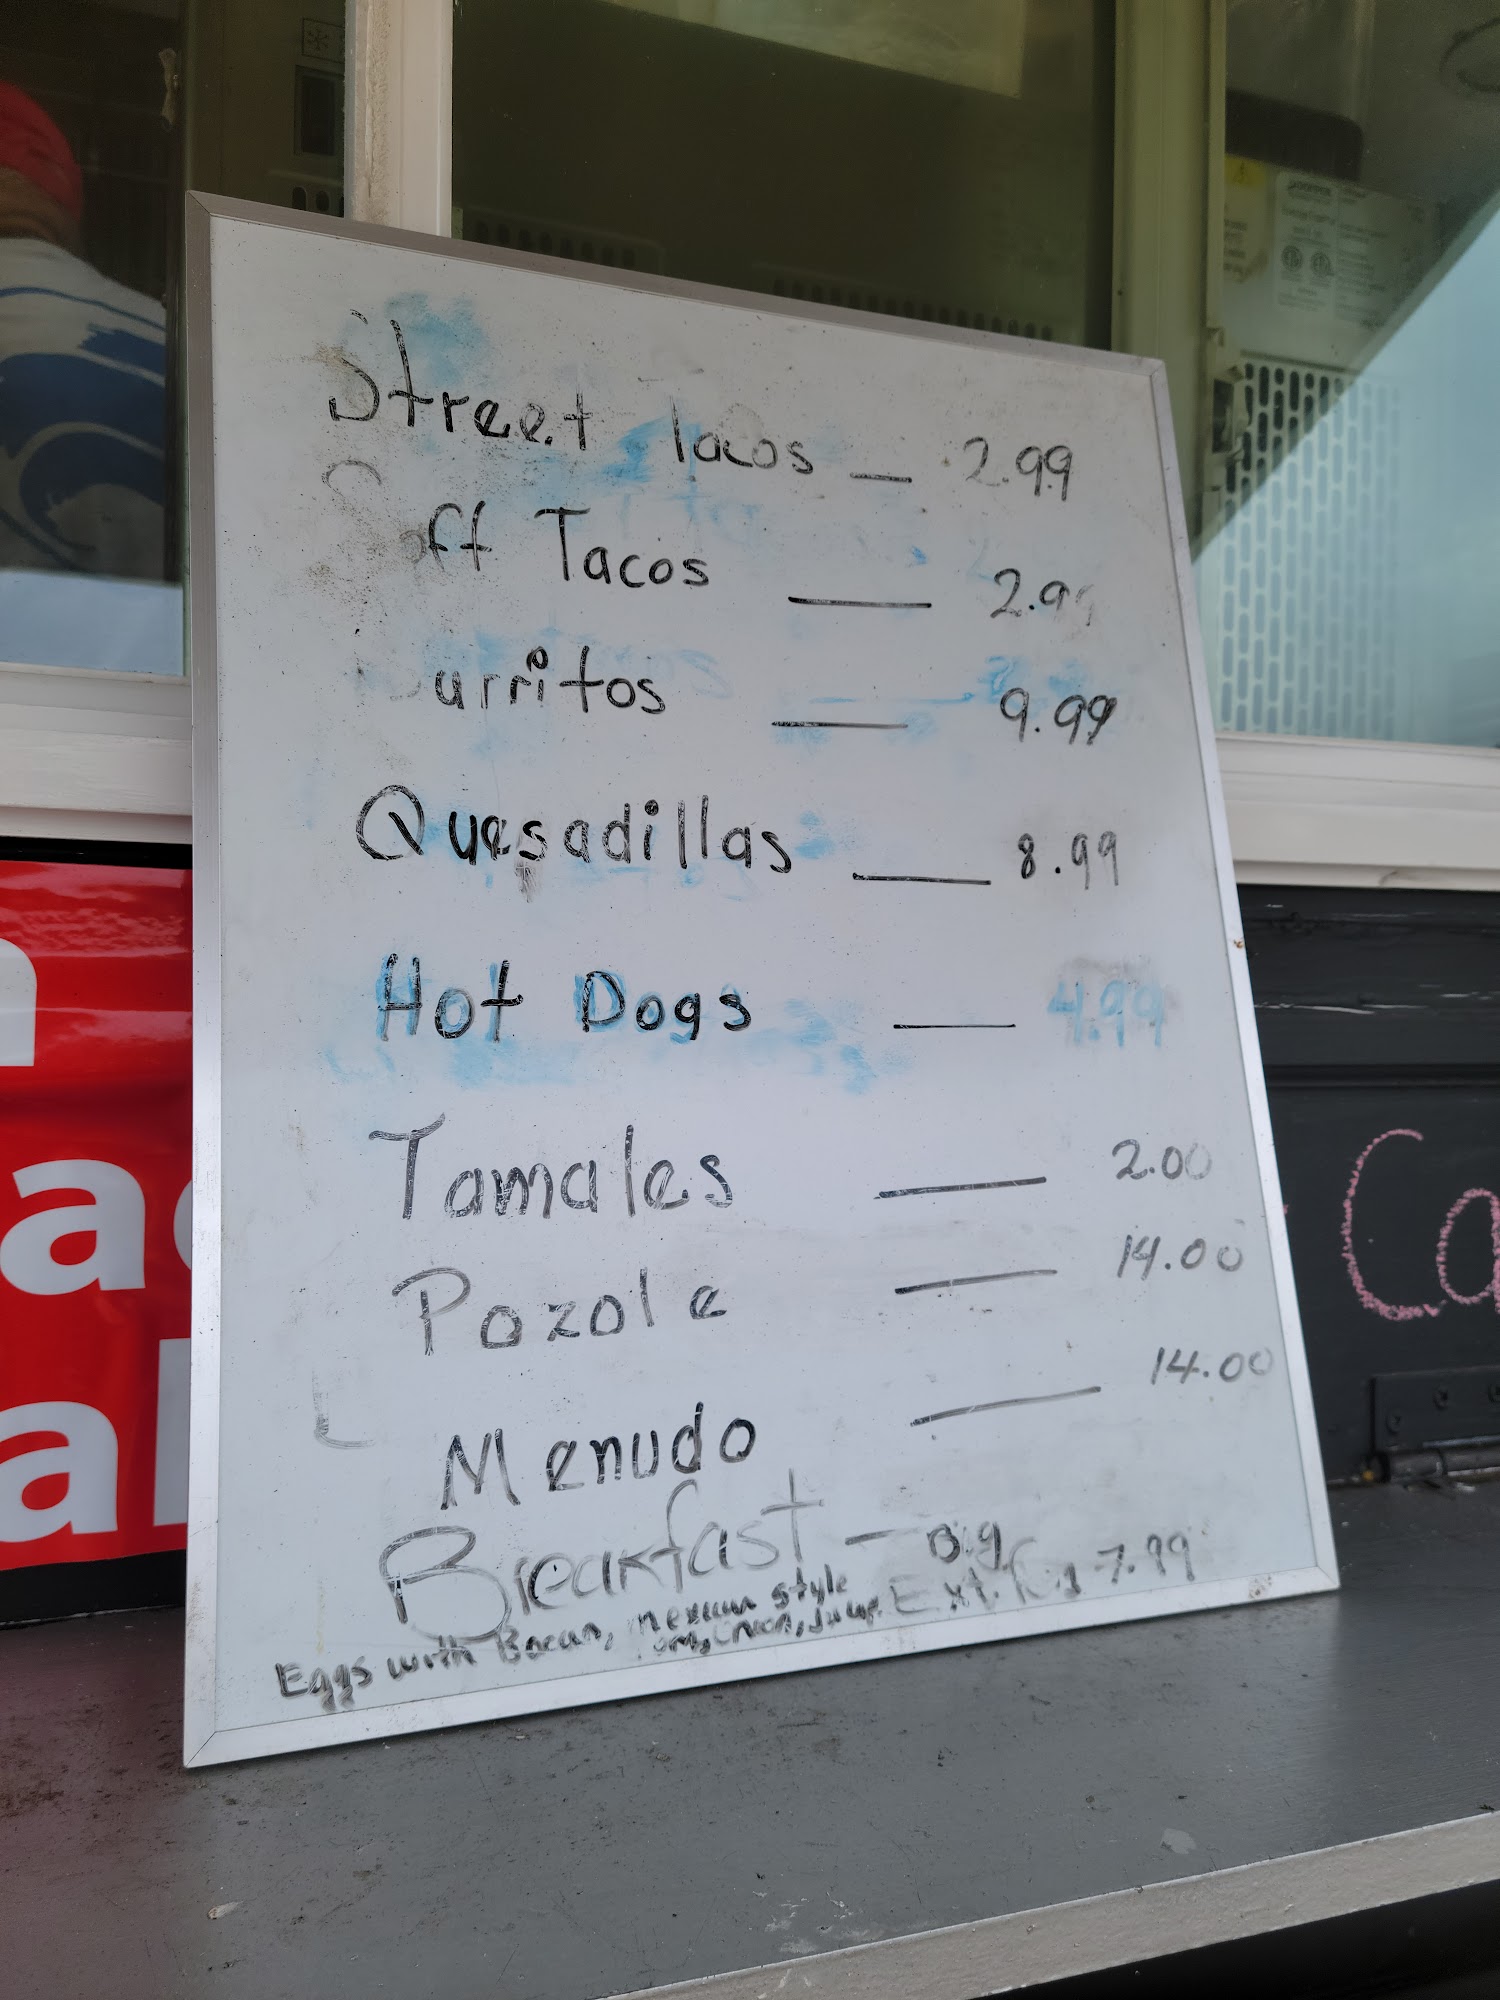 Street Tacos — 2.99
Soft Tacos — 2.99
urritos — 9.99
Quesadillas — 8.99
Hot Dogs — 4.99
Tamales — 2.00
Pozole — 14.00
Menudo — 14.00
Breakfast — 7.99
Eggs with Bacon, mexican style
Ca